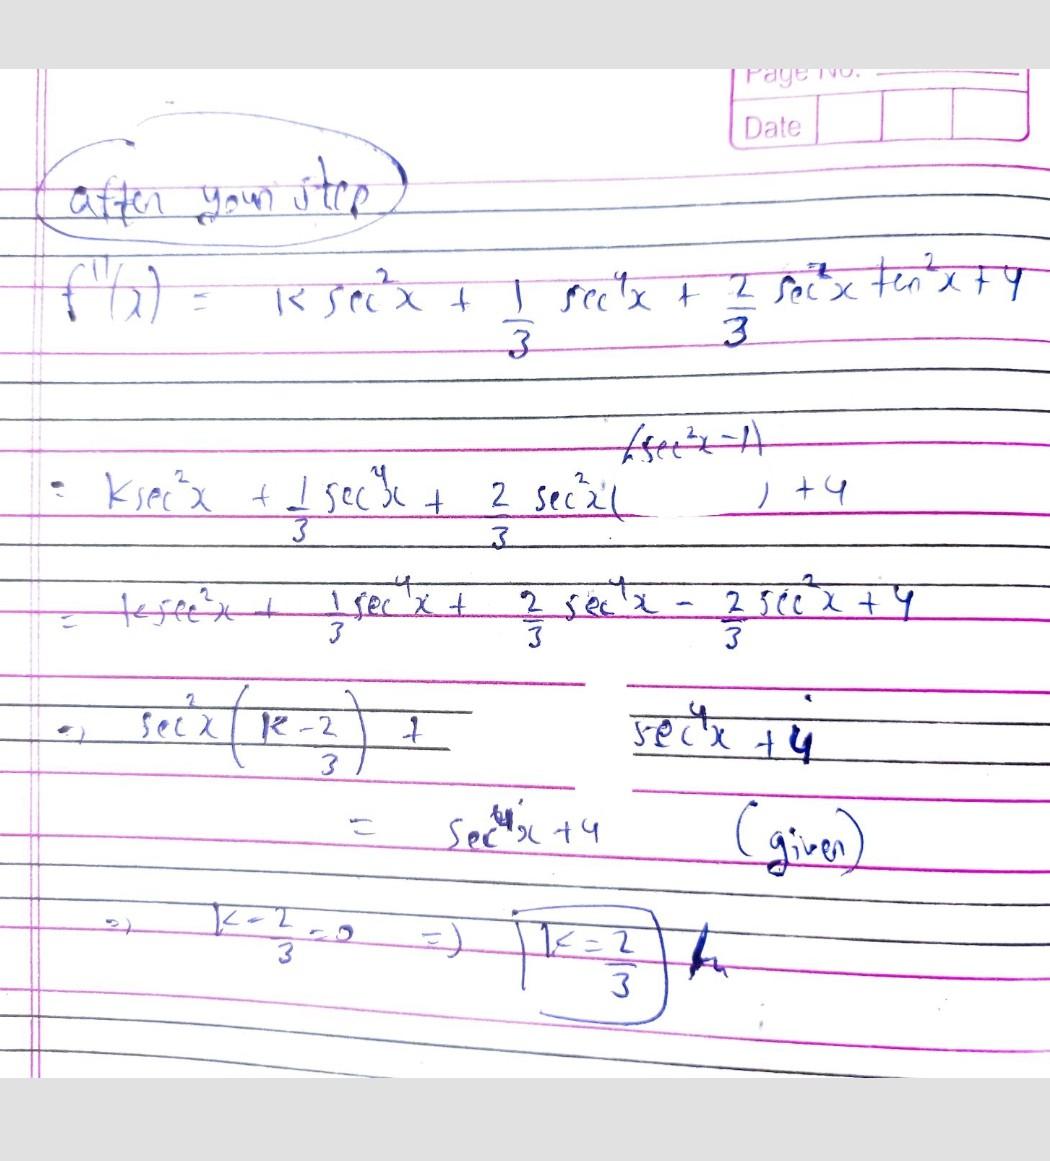 Page No.
Date
after your step
f''(x) = K sec²x + 1/3 sec⁴x + 2/3 sec²x tan²x + 4
(sec²x - 1)
= K sec²x + 1/3 sec⁴x + 2/3 sec²x( ) + 4
= K sec²x + 1/3 sec⁴x + 2/3 sec⁴x - 2/3 sec²x + 4
=) sec²x (K - 2/3) + sec⁴x + 4
= sec⁴x + 4 (given)
=) K - 2/3 = 0 =) K = 2/3